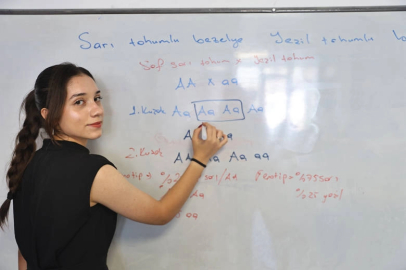 Sarı tohumlu bezelye Yeşil tohumlu
Saf sarı tohum x Yeşil tohum
AA x aa
1. Kuşak Aa Aa Aa Aa
2. Kuşak AA Aa Aa aa
Fenotip: %75 sarı
%25 yeşil
Aa
aa